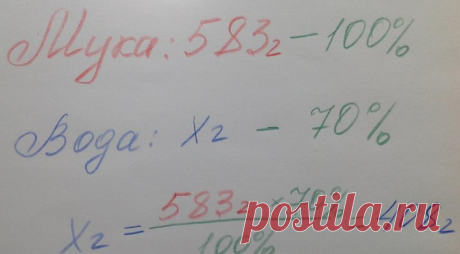 Мука: 583г – 100%
Вода: Хг – 70%
Хг = 583г × 70% / 100% = 408г
postila.ru